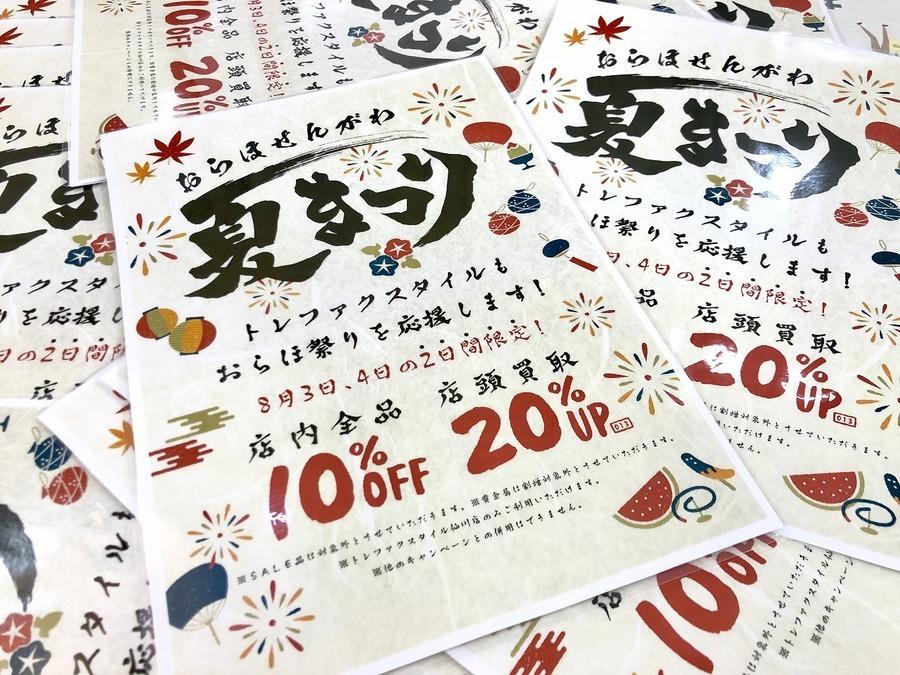 おらほせんがわ
夏まつり
トレファクスタイルも
おらほ祭りを応援します!
8月3日、4日の2日間限定!
店内全品 店頭買取
10%OFF 20%UP 013
※SALE品は対象外とさせていただきます。※貴金属は割増対象外とさせていただきます。
※トレファクスタイル仙川店のみご利用いただけます。
※他のキャンペーンとの併用はできません。
おらほせんがわ
夏まつり
トレファクスタイルも
ほ祭りを応援します!
日、4日の2日間限定!
品 店頭買取
20%UP 013
は割増対象外とさせていただきます。
いただけます。
せん。
10%OFF 20%
店内全品 店頭買取
8月3日、4日の2日間限定!
らほ
日の2日間
店
スタイルも
応援
10%OFF